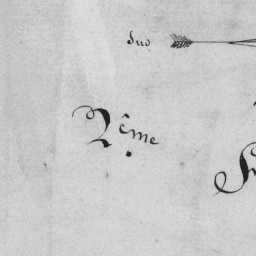 Sud
2ême